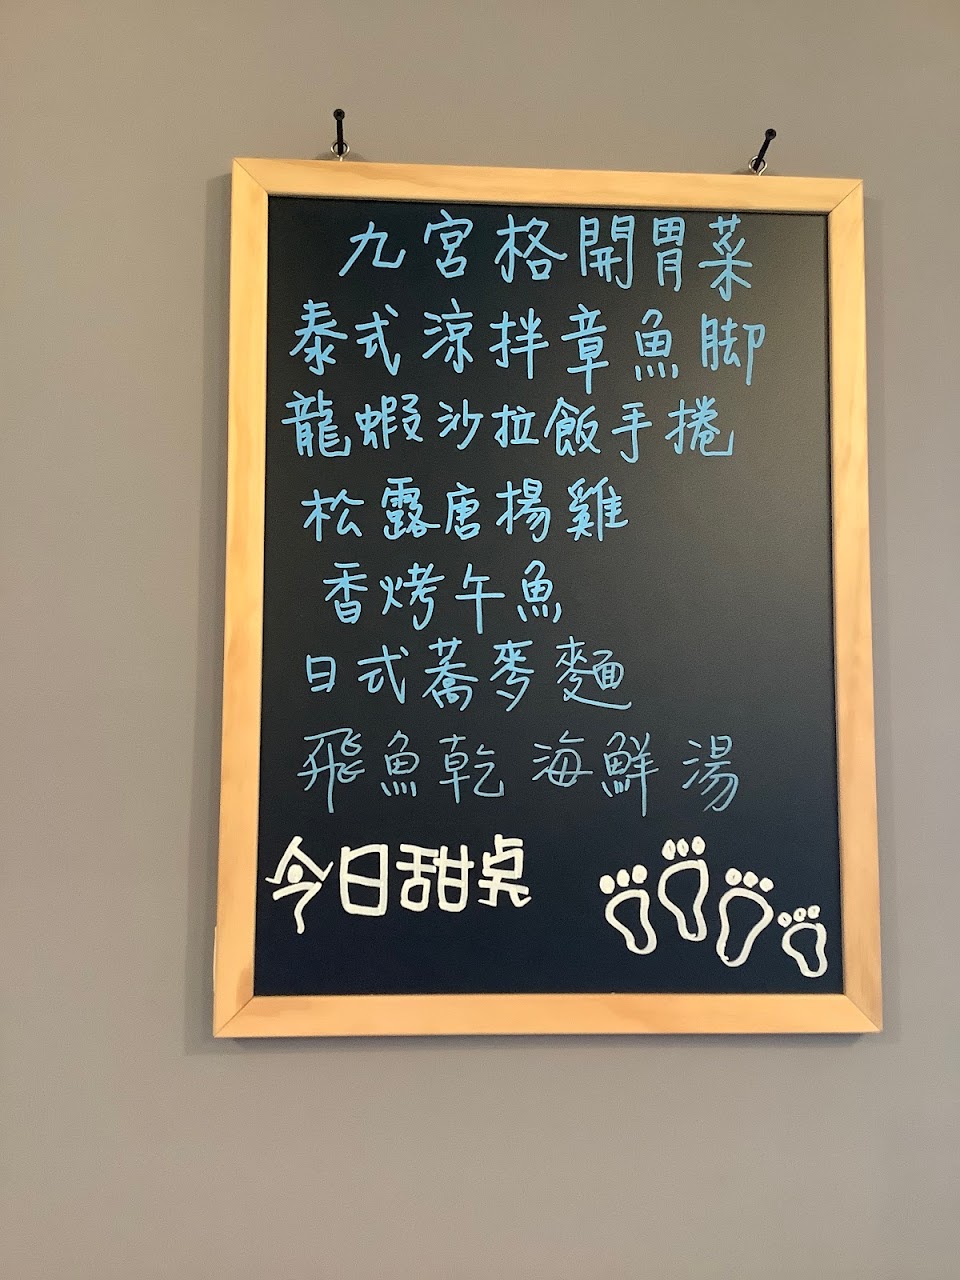 九宮格開胃菜
泰式涼拌章魚脚
龍蝦沙拉飯手捲
松露唐揚雞
香烤午魚
日式蕎麥麵
飛魚乾海鮮湯
今日甜点